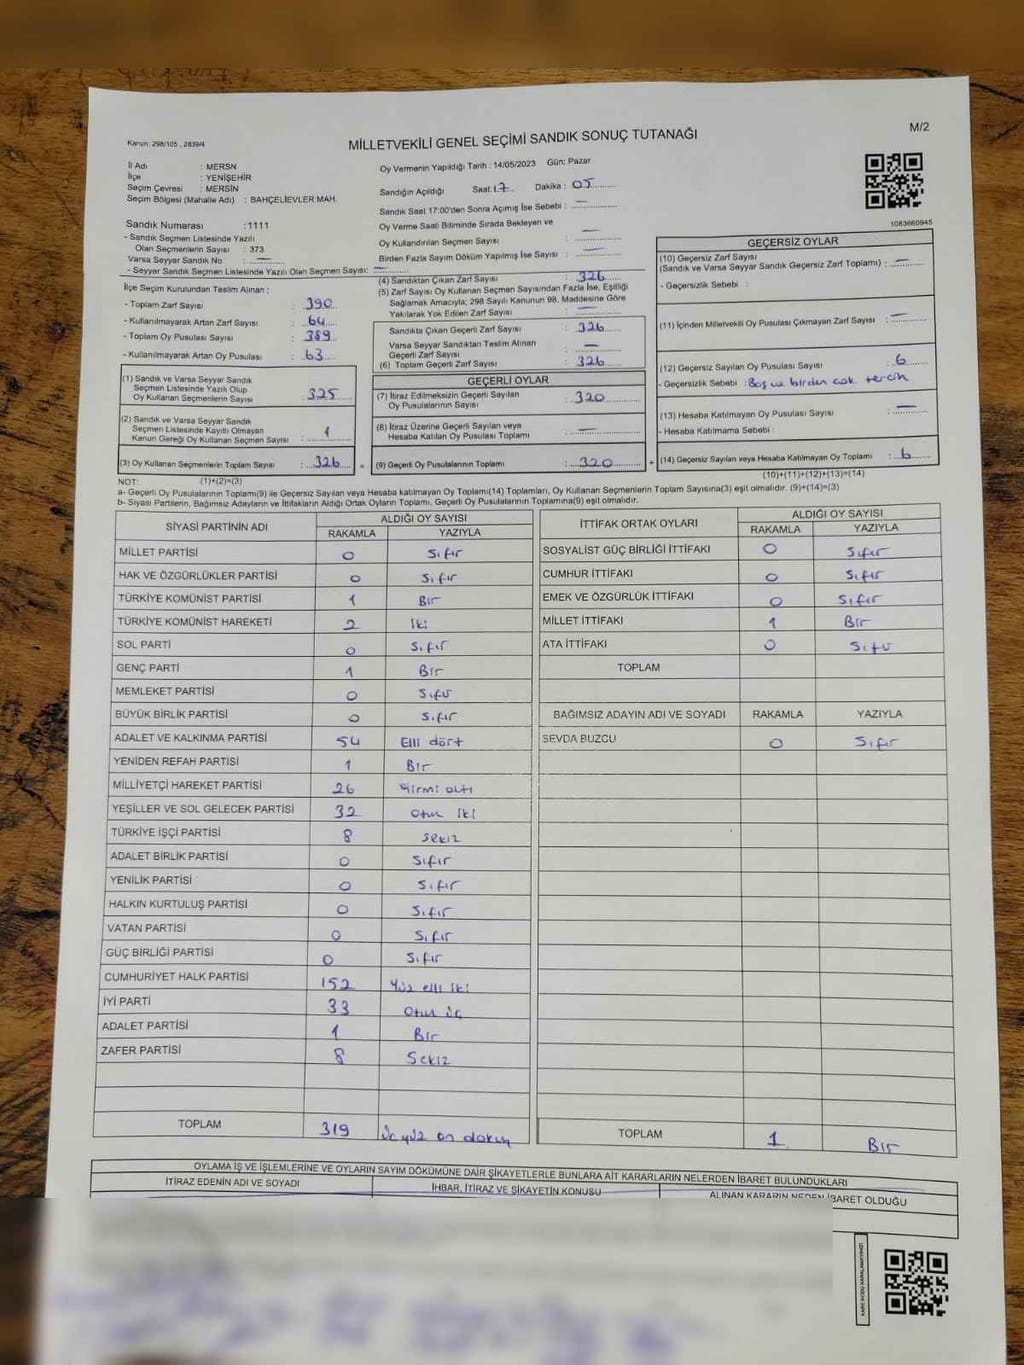 Kanun: 298/105 , 2839/4
MİLLETVEKİLİ GENEL SEÇİMİ SANDIK SONUÇ TUTANAĞI
M/2
İl Adı : MERSN
İlçe : YENİŞEHİR
Seçim Çevresi : MERSİN
Seçim Bölgesi (Mahalle Adı) : BAHÇELİEVLER MAH.
Oy Vermenin Yapıldığı Tarih : 14/05/2023 Gün: Pazar
Sandığın Açıldığı Saat: 17 Dakika : 05
Sandık Saat 17:00'den Sonra Açımış İse Sebebi : —
Oy Verme Saati Bitiminde Sırada Bekleyen ve
Oy Kullandırılan Seçmen Sayısı : —
Birden Fazla Sayım Döküm Yapılmış İse Sayısı : —
1083660945
Sandık Numarası : 1111
- Sandık Seçmen Listesinde Yazılı
Olan Seçmenlerin Sayısı : 373
Varsa Seyyar Sandık No : —
- Seyyar Sandık Seçmen Listesinde Yazılı Olan Seçmen Sayısı: —
İlçe Seçim Kurulundan Teslim Alınan :
- Toplam Zarf Sayısı : 390
- Kullanılmayarak Artan Zarf Sayısı : 64
- Toplam Oy Pusulası Sayısı : 389
- Kullanılmayarak Artan Oy Pusulası : 63
(1) Sandık ve Varsa Seyyar Sandık
Seçmen Listesinde Yazılı Olup
Oy Kullanan Seçmenlerin Sayısı : 325
(2) Sandık ve Varsa Seyyar Sandık
Seçmen Listesinde Kayıtlı Olmayan
Kanun Gereği Oy Kullanan Seçmen Sayısı : 1
(3) Oy Kullanan Seçmenlerin Toplam Sayısı : 326
(4) Sandıktan Çıkan Zarf Sayısı : 326
(5) Zarf Sayısı Oy Kullanan Seçmen Sayısından Fazla İse, Eşitliği
Sağlamak Amacıyla; 298 Sayılı Kanunun 98. Maddesine Göre
Yakılarak Yok Edilen Zarf Sayısı : —
Sandıkta Çıkan Geçerli Zarf Sayısı : 326
Varsa Seyyar Sandıktan Teslim Alınan
Geçerli Zarf Sayısı : —
(6) Toplam Geçerli Zarf Sayısı : 326
GEÇERLİ OYLAR
(7) İtiraz Edilmeksizin Geçerli Sayılan
Oy Pusulalarının Sayısı : 320
(8) İtiraz Üzerine Geçerli Sayılan veya
Hesaba Katılan Oy Pusulası Toplamı : —
= (9) Geçerli Oy Pusulalarının Toplamı : 320 +
GEÇERSİZ OYLAR
(10) Geçersiz Zarf Sayısı
(Sandık ve Varsa Seyyar Sandık Geçersiz Zarf Toplamı) : —
- Geçersizlik Sebebi :
(11) İçinden Milletvekili Oy Pusulası Çıkmayan Zarf Sayısı : —
(12) Geçersiz Sayılan Oy Pusulası Sayısı : 6
- Geçersizlik Sebebi : Boş ve birden çok tercih
(13) Hesaba Katılmayan Oy Pusulası Sayısı : —
- Hesaba Katılmama Sebebi :
(14) Geçersiz Sayılan veya Hesaba Katılmayan Oy Toplamı : 6
NOT: (1)+(2)=(3)
(10)+(11)+(12)+(13)=(14)
a- Geçerli Oy Pusulalarının Toplamı(9) ile Geçersiz Sayılan veya Hesaba katılmayan Oy Toplamı(14) Toplamları, Oy Kullanan Seçmenlerin Toplam Sayısına(3) eşit olmalıdır. (9)+(14)=(3)
b- Siyasi Partilerin, Bağımsız Adayların ve İttifakların Aldığı Ortak Oyların Toplamı, Geçerli Oy Pusulalarının Toplamına(9) eşit olmalıdır.
SİYASİ PARTİNİN ADI ALDIĞI OY SAYISI
RAKAMLA YAZIYLA
MİLLET PARTİSİ 0 Sıfır
HAK VE ÖZGÜRLÜKLER PARTİSİ 0 Sıfır
TÜRKİYE KOMÜNİST PARTİSİ 1 Bir
TÜRKİYE KOMÜNİST HAREKETİ 2 İki
SOL PARTİ 0 Sıfır
GENÇ PARTİ 1 Bir
MEMLEKET PARTİSİ 0 Sıfır
BÜYÜK BİRLİK PARTİSİ 0 Sıfır
ADALET VE KALKINMA PARTİSİ 54 Elli dört
YENİDEN REFAH PARTİSİ 1 Bir
MİLLİYETÇİ HAREKET PARTİSİ 26 Yirmi altı
YEŞİLLER VE SOL GELECEK PARTİSİ 32 Otuz iki
TÜRKİYE İŞÇİ PARTİSİ 8 Sekiz
ADALET BİRLİK PARTİSİ 0 Sıfır
YENİLİK PARTİSİ 0 Sıfır
HALKIN KURTULUŞ PARTİSİ 0 Sıfır
VATAN PARTİSİ 0 Sıfır
GÜÇ BİRLİĞİ PARTİSİ 0 Sıfır
CUMHURİYET HALK PARTİSİ 152 Yüz elli iki
İYİ PARTİ 33 Otuz üç
ADALET PARTİSİ 1 Bir
ZAFER PARTİSİ 8 Sekiz
TOPLAM 319 Üçyüz on dokuz
İTTİFAK ORTAK OYLARI ALDIĞI OY SAYISI
RAKAMLA YAZIYLA
SOSYALİST GÜÇ BİRLİĞİ İTTİFAKI 0 Sıfır
CUMHUR İTTİFAKI 0 Sıfır
EMEK VE ÖZGÜRLÜK İTTİFAKI 0 Sıfır
MİLLET İTTİFAKI 1 Bir
ATA İTTİFAKI 0 Sıfır
TOPLAM
BAĞIMSIZ ADAYIN ADI VE SOYADI RAKAMLA YAZIYLA
SEVDA BUZCU 0 Sıfır
TOPLAM 1 Bir
OYLAMA İŞ VE İŞLEMLERİNE VE OYLARIN SAYIM DÖKÜMÜNE DAİR ŞİKAYETLERLE BUNLARA AİT KARARLARIN NELERDEN İBARET BULUNDUKLARI
İTİRAZ EDENİN ADI VE SOYADI İHBAR, İTİRAZ VE ŞİKAYETİN KONUSU ALINAN KARARIN NEDEN İBARET OLDUĞU